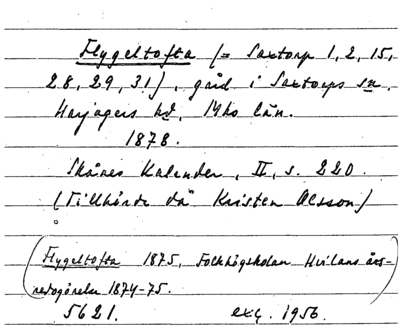 Flygeltofta (= Saxtorp 1, 2, 15,
28, 29, 31), gård i Saxtorps sn,
Harjagers hd, Mho län.
1878.
Skånes Kalender, II, s. 220.
(Tillhörde då Kristen Olsson)
(Flygeltofta 1875, Folkhögskolan Hvilans års-
redogörelse 1874-75.
5621. exc. 1956.